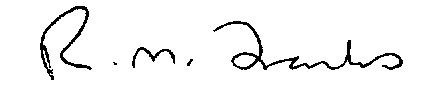 R. M. Franks